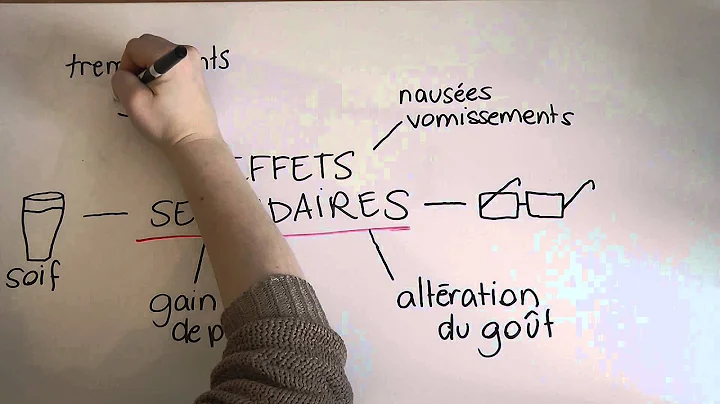 nausées
vomissements
EFFETS
SECONDAIRES
soif
gain
de
altération
du goût